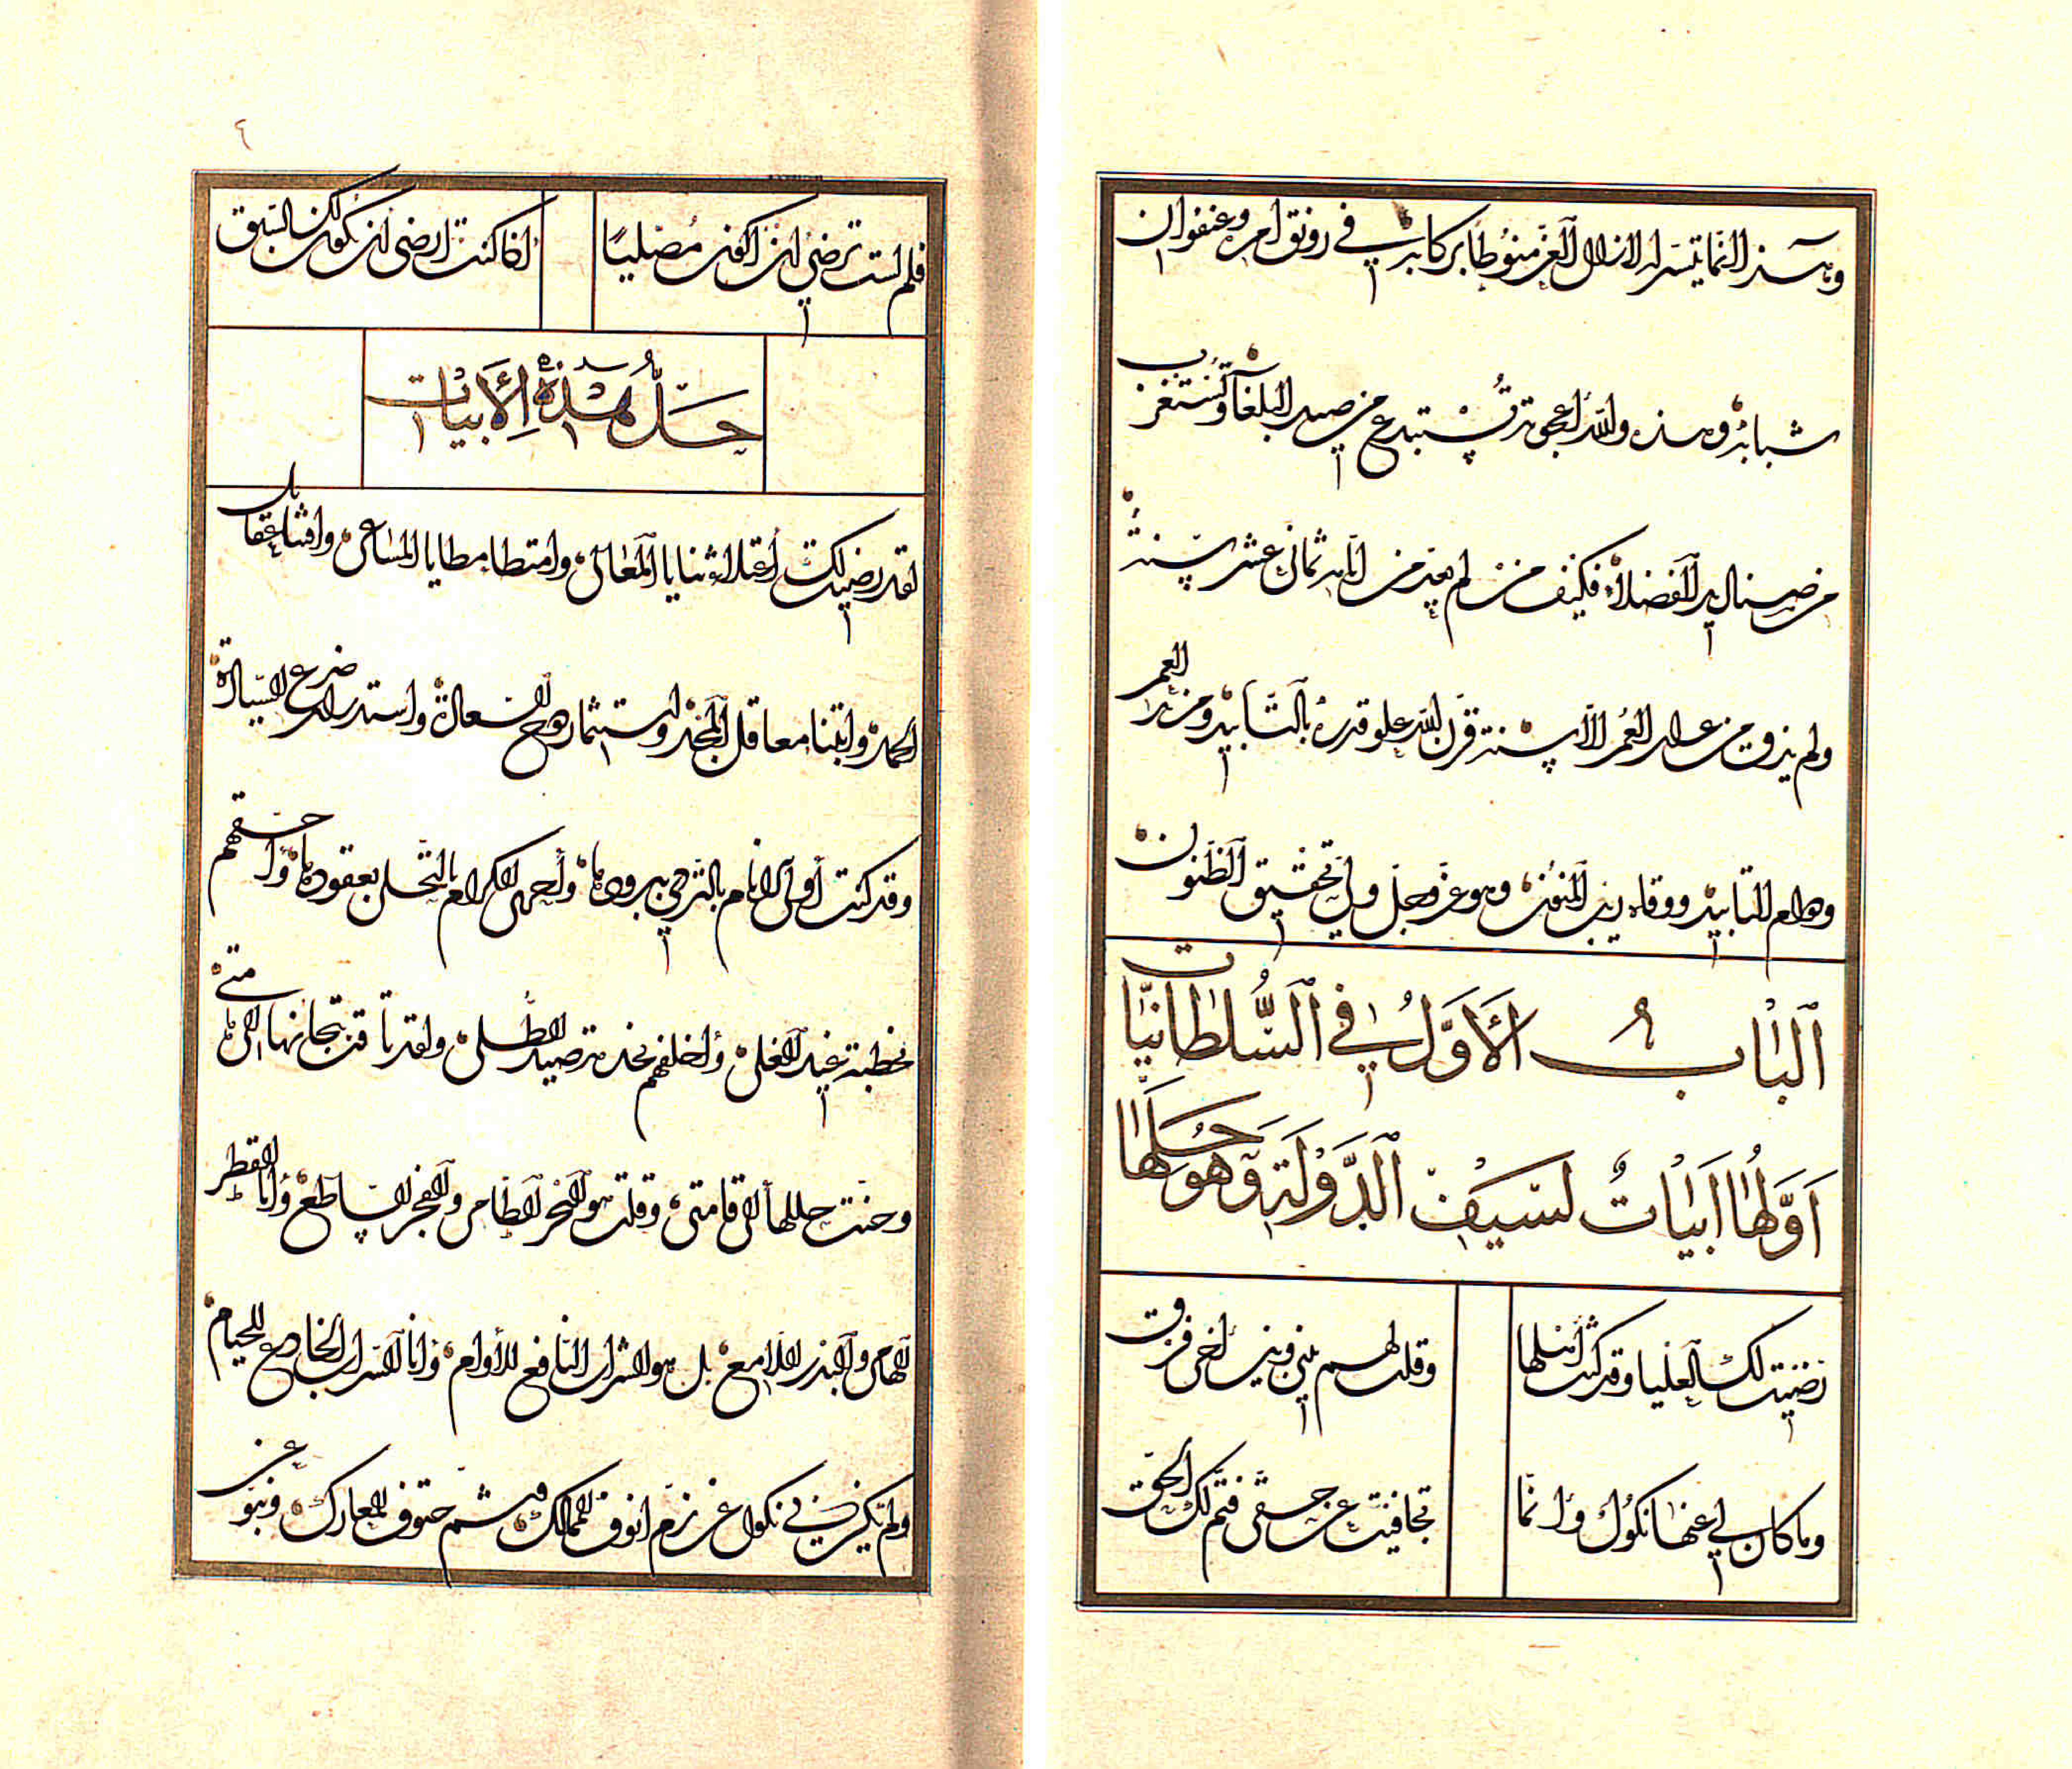 وهذا إنما تيسر له لا زال العز منوطا بركابه في رونق أمره وعنفوان
شبابه وهذه والله أعجوبة تستبدع من صيد البلغاء وتستغرب
من صناديد الفضلاء فكيف من لم يعد من أيامه ثماني عشر سنة
ولم يذق من عمل العمر إلا سنة قرن الله علو قدره بالتأبيد ومزيد العمر
ودوام التأييد ووقاه ريب المنون وهو عز وجل ولي تحقيق الظنون
الباب الأول في السلطانيات
أولها أبيات لسيف الدولة وهو حلها
رضيت لك العليا وقد كنت أهلها وقلت لهم بيني وبين أخي فرق
وما كان لي عنها نكول وإنما تجافيت عن حقي فتم لك الحق
٤
فلم لست ترضى أن أكون مصليا إذا كنت أرضى أن يكون لك السبق
حل هذه الأبيات
لقد رضيت لك اعتلاء ثنايا المعالي وامتطاء مطايا المساعي واقتناء عقائل
الحمد وابتناء معاقل المجد واستثمار دوح السعادة واستدرار ضرع السيادة
وقد كنت أولى الأنام بالتردي ببرودها وأحمى الكرام بالتحلي بعقودها وأحقهم
بخطبة غيد العلى وأخلقهم بخدمة صيد الطلى ولقد تاقت تيجانها إلى هامتي
وحنت حللها إلى قامتي وقلت هو البحر الطامي والفجر الساطع وأنا القطر
الهامي والبدر اللامع بل هو الشراب النافع للأوام وأنا السراب الخادع للحيام
ولم يكن في نكول عن زم أنوف الممالك وشم حتوف المعارك ونبو عن